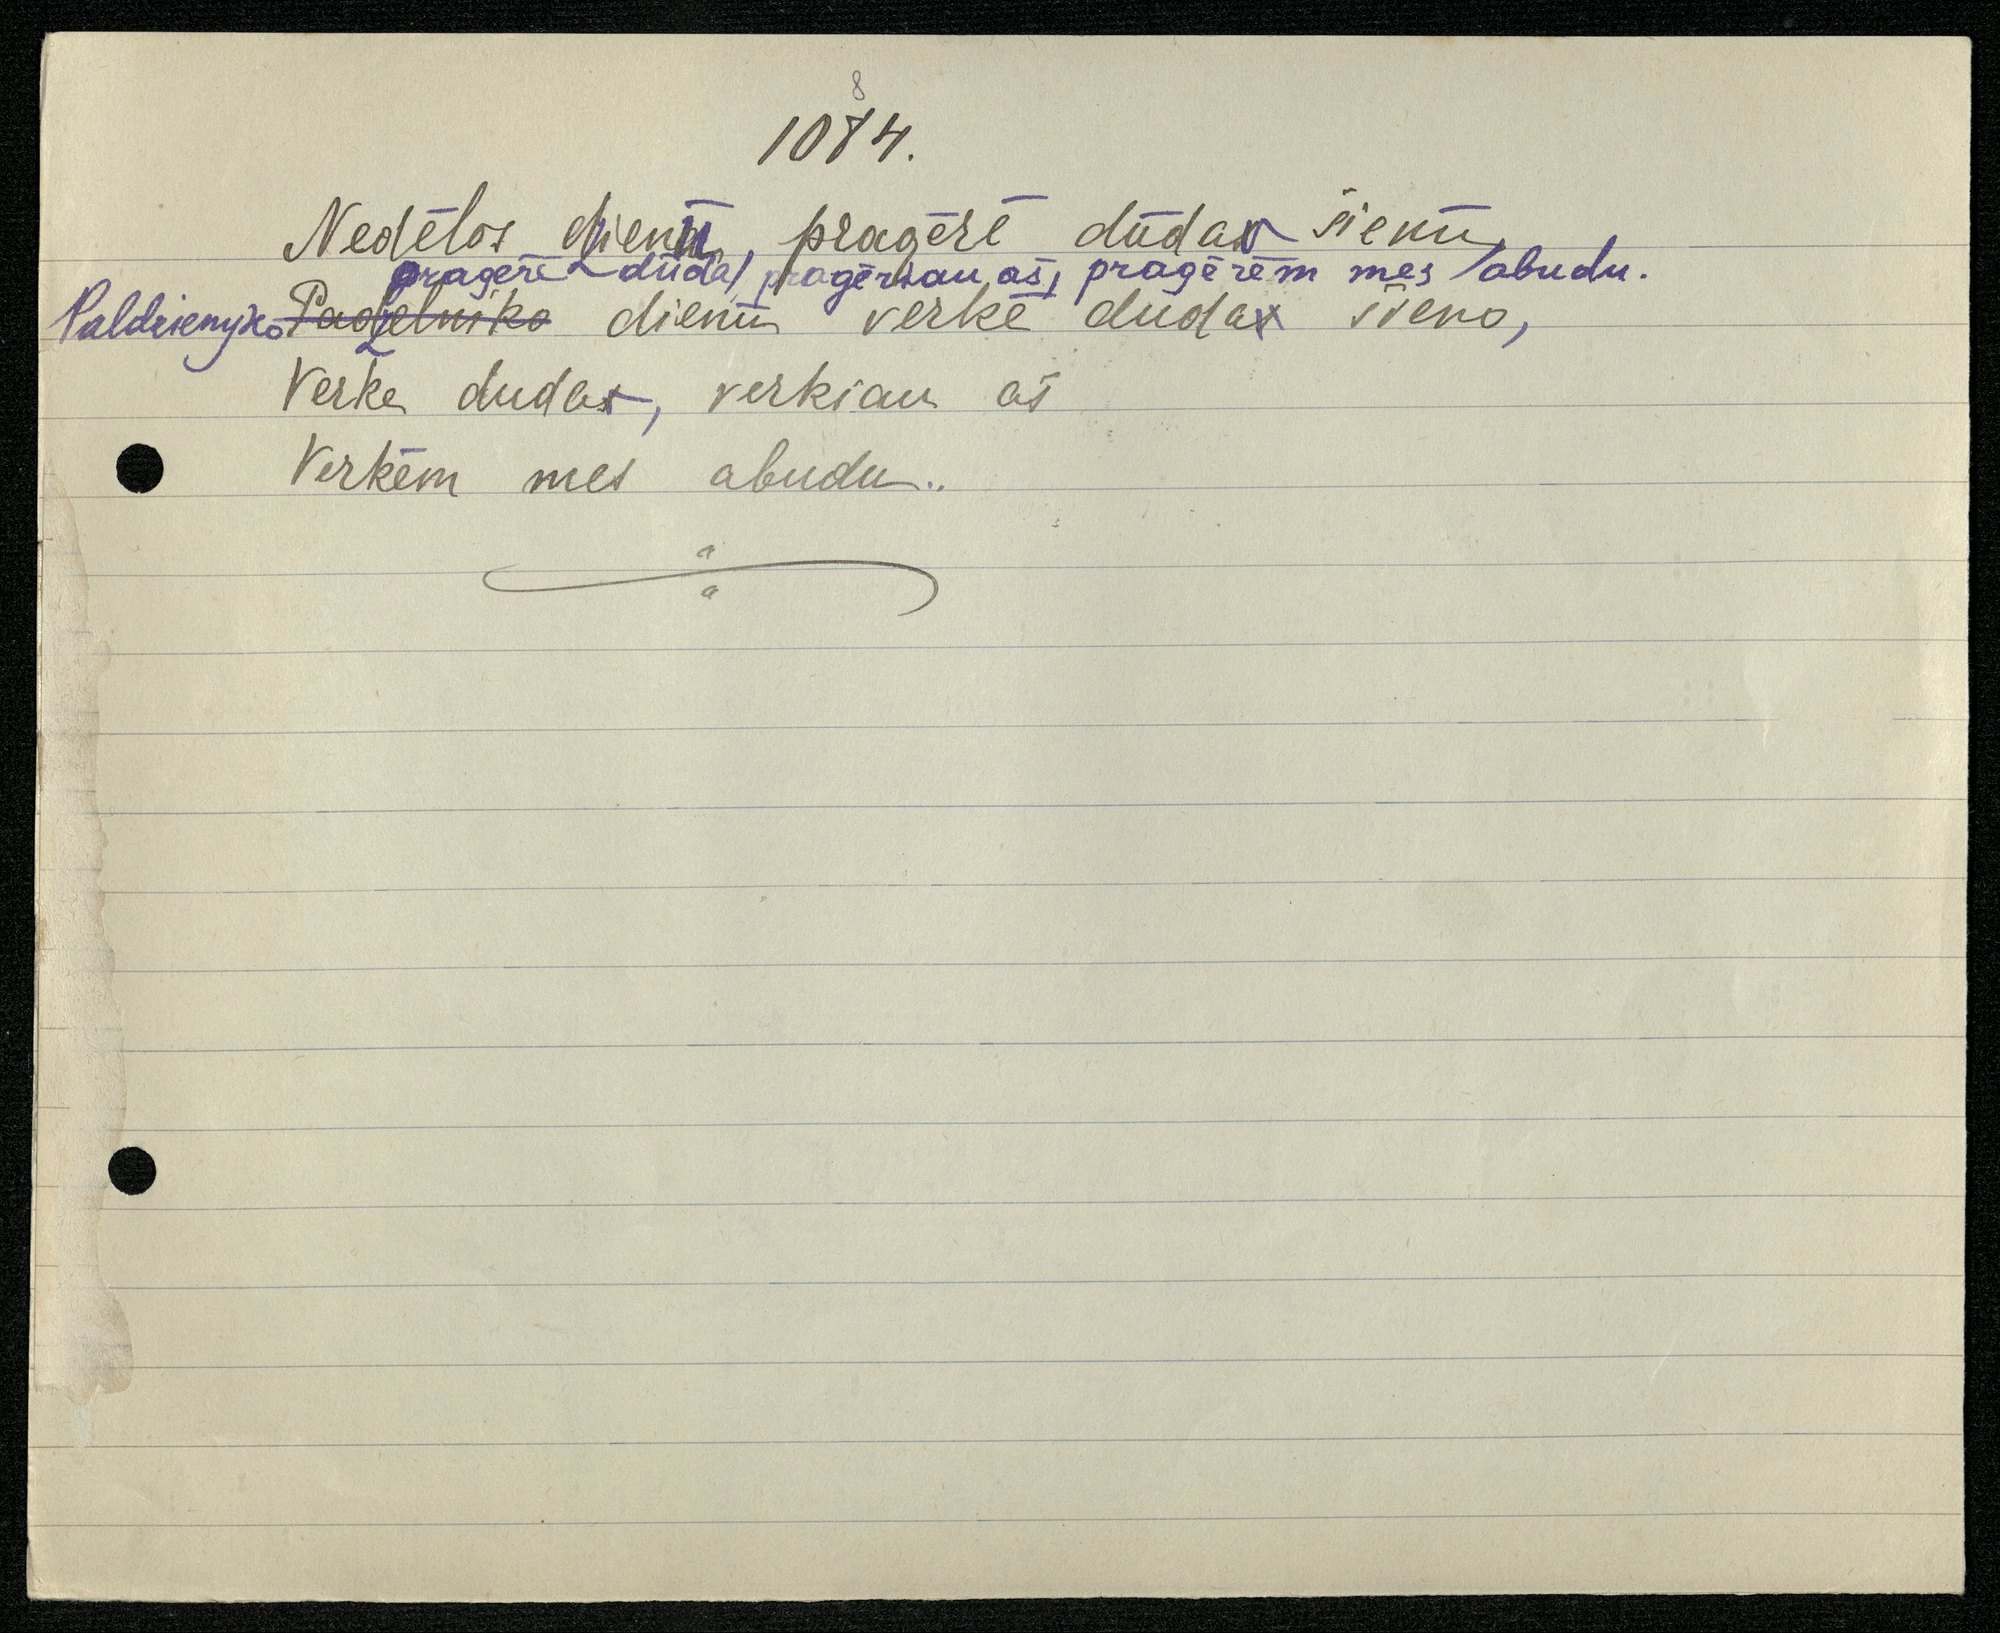 8
1084.
Nedēlos dienū, pragērē dūda šienū,
pragērē dūda, pragēriau aš, pragērēm mes abudu.
Paldienyko Padelniko dienū verkē dūda šieno,
Verke duda, verkiau aš
Verkēm mes abudu..